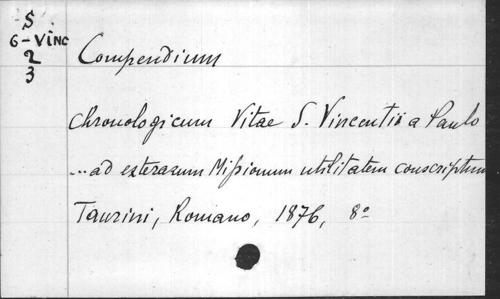 S
G-VINC
2
3
Compendium
chronologicum Vitae S. Vincentii a Paulo
... ad exterarum Mißionum utilitatem conscriptum
Taurini, Romano, 1876, 8º